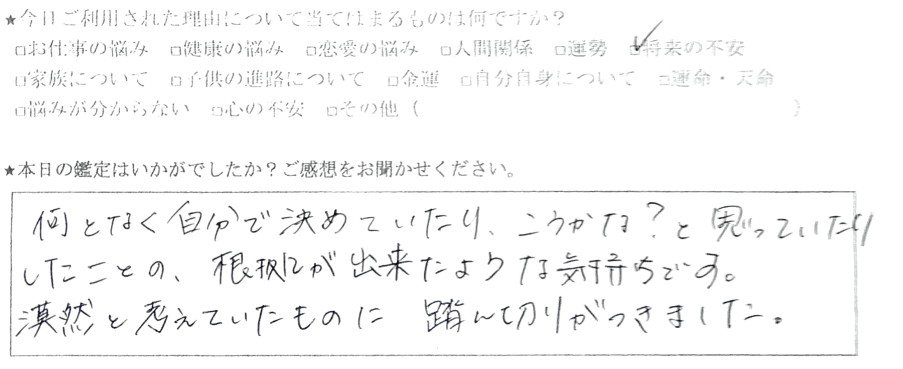 ★今日ご利用された理由について当てはまるものは何ですか？
□お仕事の悩み □健康の悩み □恋愛の悩み □人間関係 □運勢 ☑将来の不安
□家族について □子供の進路について □金運 □自分自身について □運命・天命
□悩みが分からない □心の不安 □その他（ ）
★本日の鑑定はいかがでしたか？ご感想をお聞かせください。
何となく自分で決めていたり、こうかな？と思っていたり
したことの、根拠が出来たような気持ちです。
漠然と考えていたものに 踏ん切りがつきました。